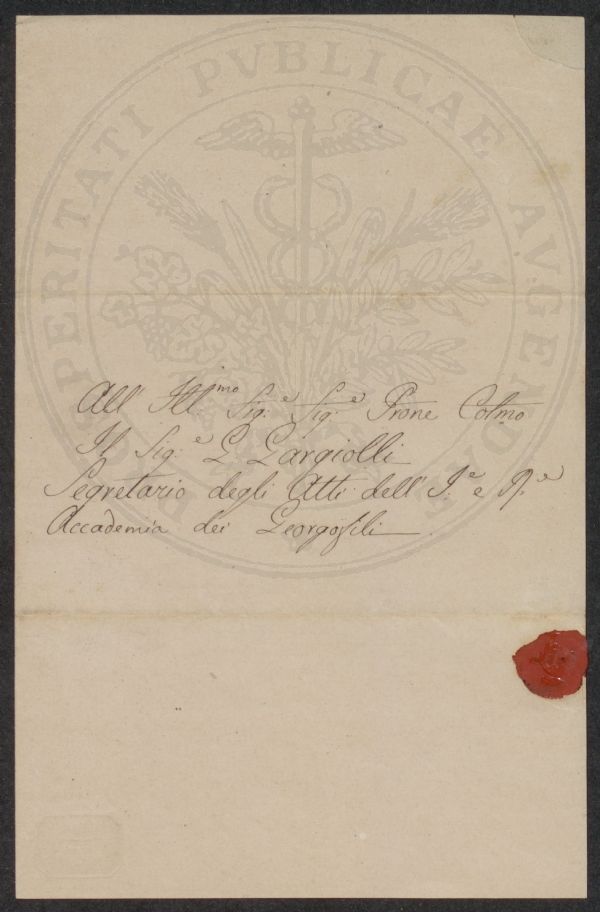 PROSPERITATI PVBLICAE AVGENDAE
All' Ill.mo Sig.e Sig.e Prone Colmo
Il Sig.e L. Gargiolli
Segretario degli Atti dell' I.e e R.e
Accademia dei Georgofili